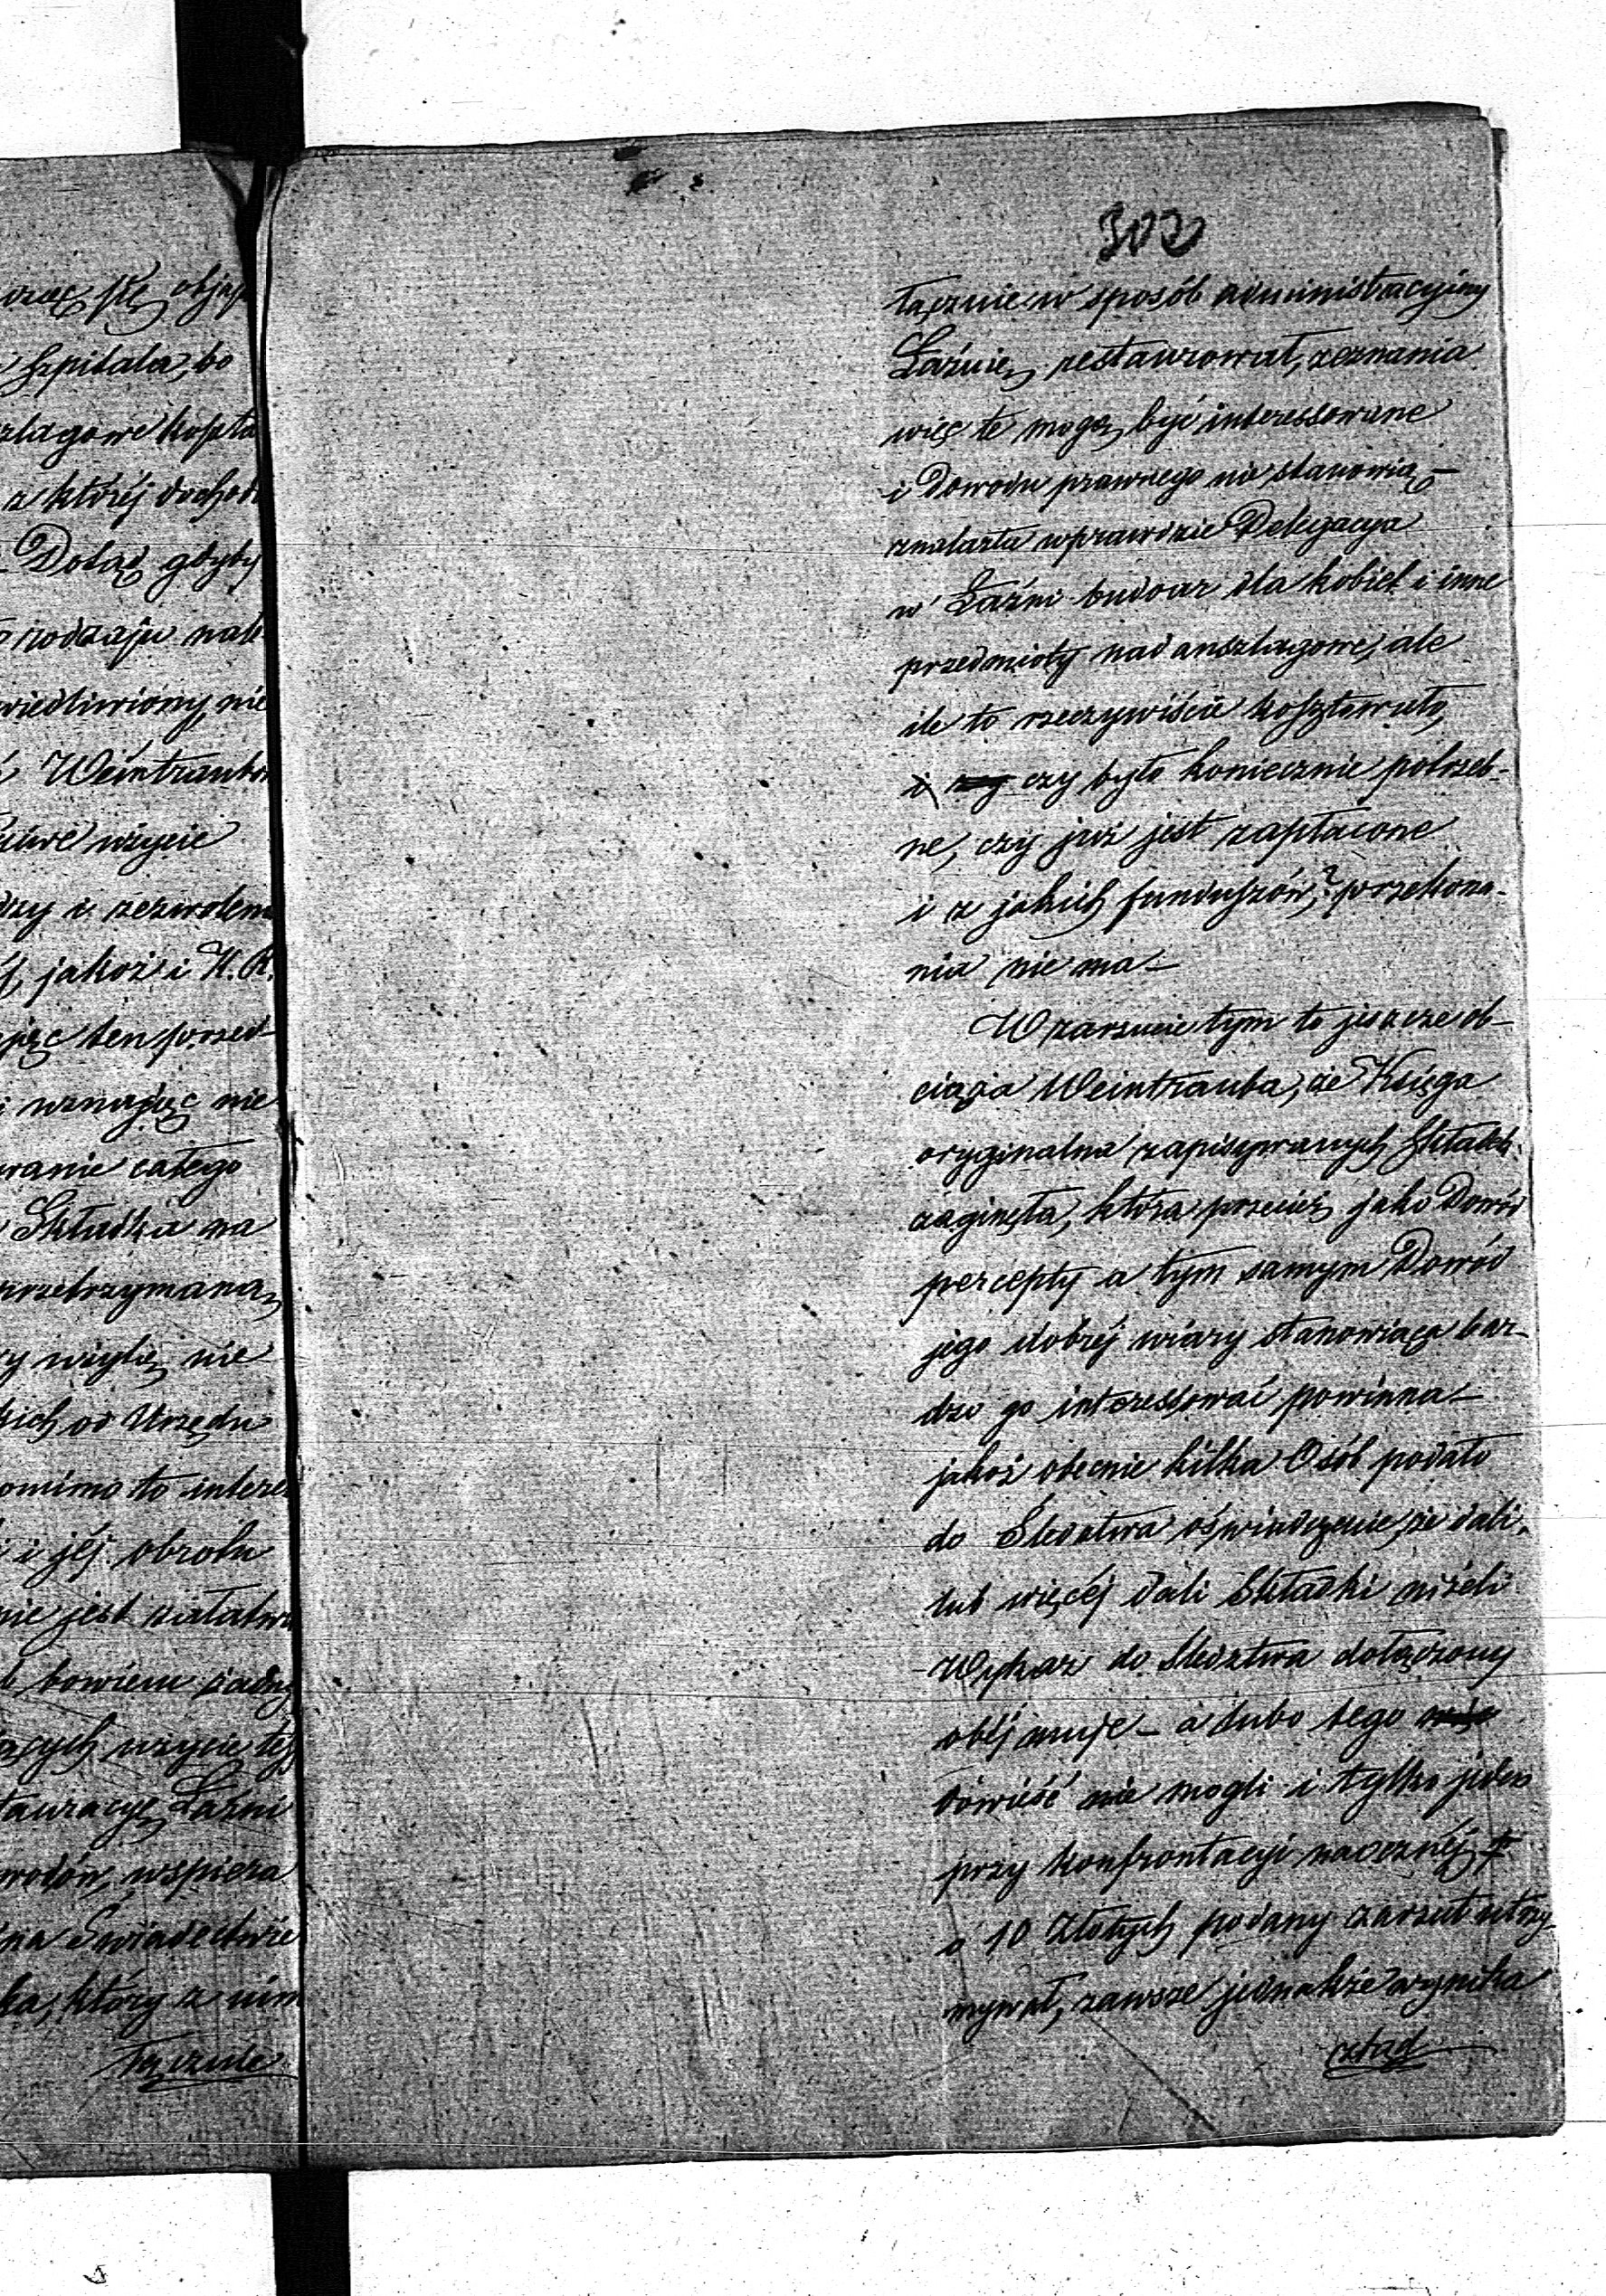 wszę się objaś
Szpitala, bo
szlagowe koszta
z któréj dochod
Dotąd gdyby
rodzaju nale
wiedliwiony, nie
Weintraubow
ciwé użycie
dzy i zezwolenia
jakoż i K. R.
jęc ten przed-
i uznając nie
wanie całego
Składka na
przetrzymaną
ry wizytię nie
kich od Urzędu
omimo to intere
i jéj obrotu
nie jest załatwi
b bowiem żadny
ących użycie téj
tauracyę Łaźni
wodów, wspiera
na Świadectwie
ka, który z nim
łącznie
302
łącznie w sposób administracyiny
Łaźnię restaurował, zeznania
więc te mogą być interessowane
i Dowodu prawnego nie stanowią –
znalazła wprawdzie Delegacya
w Łaźni budoar dla kobiet i inne
przedmioty nad anszlagowe, ale
ile to rzeczywiście kosztowało,
i czy czy było koniecznie potrzeb-
ne, czy już jest zapłacone
i z jakich funduszów,? przekona-
nia nie ma –
W zarzucie tym to jeszcze ob-
ciąża Weintrauba, że Księga
oryginalna zapisywanych Składek
zaginęła, która przecież jako Dowód
percepty a tym samym Dowód
jego dobréj wiary stanowiąca bar-
dzo go interessować powinna –
jakoż obecnie kilka Osób podało
do Śledztwa oświadczenie, że dali,
lub więcéj dali Składki niżeli
Wykaz do Śledztwa dołączony
obéjmuje – a lubo tego nie
dowieść nie mogli i tylko jeden
przy konfrontacyi naocznéj
o 10 Złotych podany zarzut utrzy-
mywał, zawsze jednakże wynika
ztąd